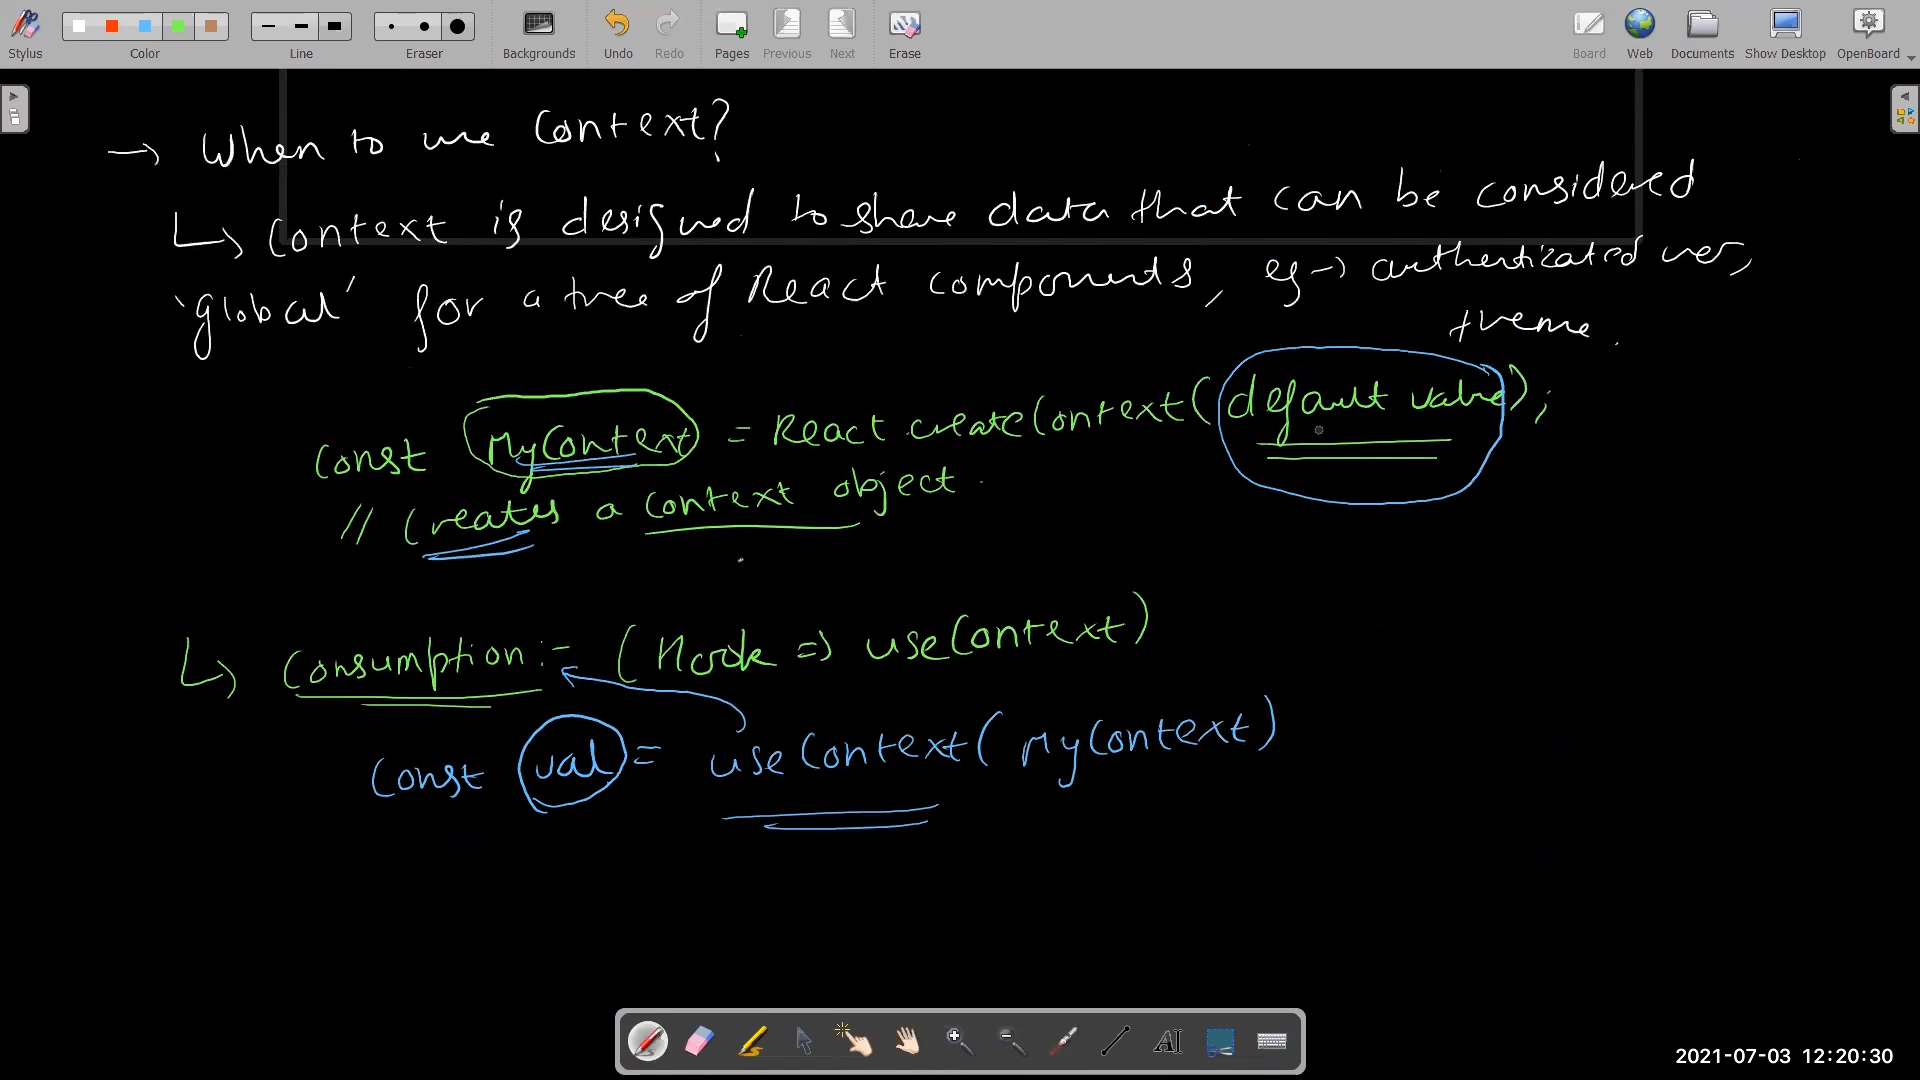 Stylus Color Line Eraser Backgrounds Undo Redo Pages Previous Next Erase Board Web Documents Show Desktop OpenBoard
→ When to use Context?
↳ Context is designed to share data that can be considered
'global' for a tree of React components, eg → authenticated user,
theme.
const MyContext = React.createContext(default value);
// Creates a context object.
↳ Consumption :- (Hook => useContext)
const val = useContext(MyContext)
2021-07-03 12:20:30